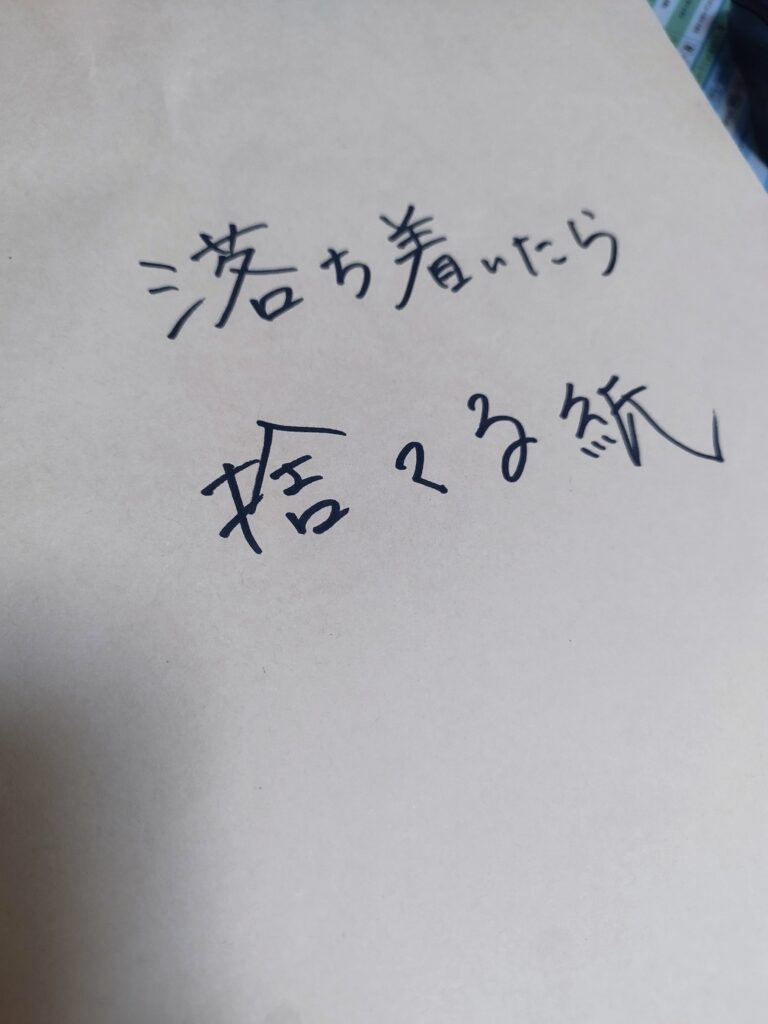 落ち着いたら
捨てる紙